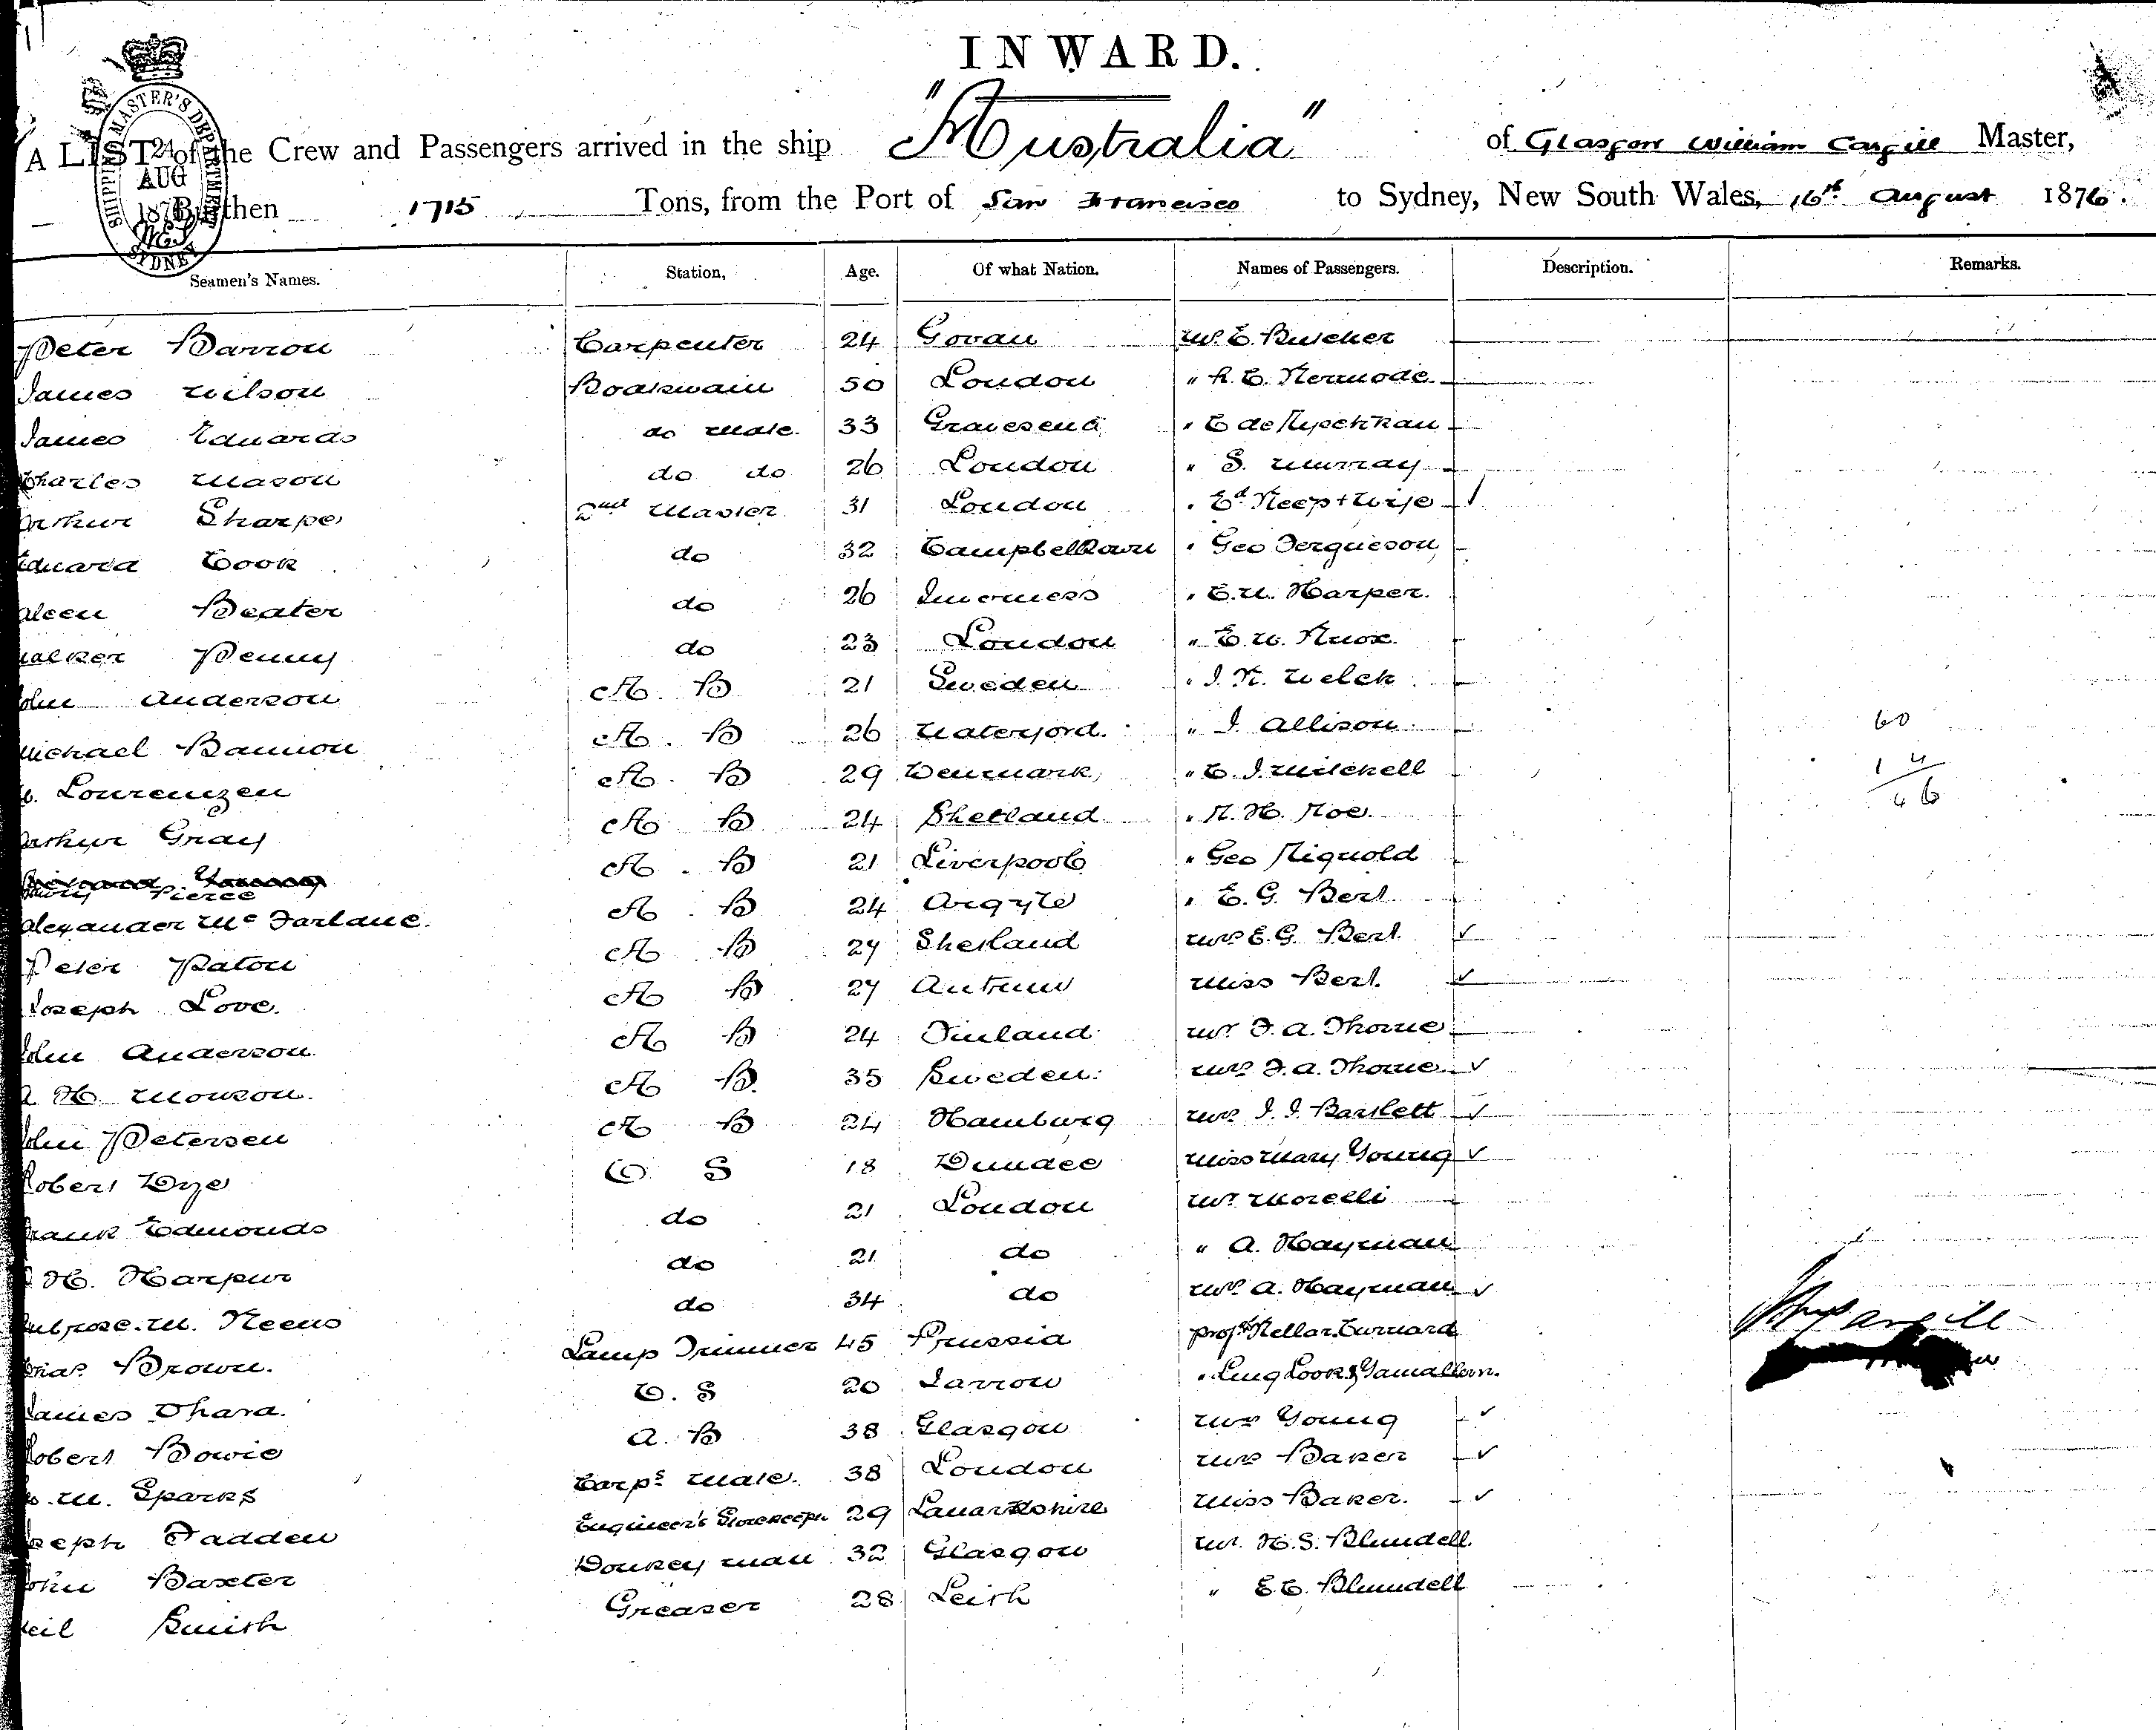 INWARD.
A LIST of the Crew and Passengers arrived in the ship "Australia" of Glasgow William Cargill Master,
Burthen 1715 Tons, from the Port of San Francisco to Sydney, New South Wales, 16th August 1876.
SHIPPING MASTER'S DEPARTMENT
24
AUG
1876
SYDNEY
Seamen's Names. Station, Age. Of what Nation. Names of Passengers. Description. Remarks.
Peter Barron Carpenter 24 Govan Mr. C. Butcher
James Wilson Boatswain 50 London " R. C. Kermode
James Edwards do Mate. 33 Gravesend " C de
Charles Mason do do 26 London " S. Murray
Arthur Sharpe 2nd Master 31 London " Ed Keep + Wife ✓
Edward Cook do 32 Campbeltown " Geo Fergueson
Beater do 26 Inverness " C. M. Harper.
Walker Penny do 23 London " E. W. Knox
John Anderson A. B 21 Sweden " J. K. Welch
Michael Bannon A. B 26 Waterford. " J. Allison 60
Lourenzen A. B 29 Denmark " C. J. Mitchell 14
Arthur Gray A B 24 Shetland " R. H. Roe. 46
Pierce A. B 21 Liverpool " Geo Rignold
Alexander McFarlane. A. B 24 Argyle " E. G. Bert
Peter Paton A B 27 Shetland Mrs E. G. Bert ✓
Joseph Love. A B 27 Antrim Miss Bert. ✓
John Anderson. A B 24 Finland Mr F. A. Thorne
A. H. Monson. A B. 35 Sweden. Mrs F. A. Thorne ✓
John Petersen A B 24 Hamburg Mrs J. J. Bartlett ✓
Robert Dye O S 18 Dundee Miss Mary Young ✓
Frank Edmonds do 21 London Mr Morelli
H. Harpur do 21 do " A. Hayman
Ambrose. M. Keens do 34 do Mrs A. Hayman ✓
Chas Brown. Lamp Trimmer 45 Prussia Profs Kellar. Cunard
James Ohara. O. S 20 Jarrow " Ling Look & Yamadeva.
Robert Bowie A. B 38 Glasgow Mrs Young ✓
M. Sparks Carps Mate. 38 London Mrs Baker ✓
Joseph Fadden Engineer's Storekeeper 29 Lanarkshire Miss Baker. ✓
John Baxter Donkey man 32 Glasgow Mr. H. S. Blundell.
Neil Smith Greaser 28 Leith " E. C. Blundell